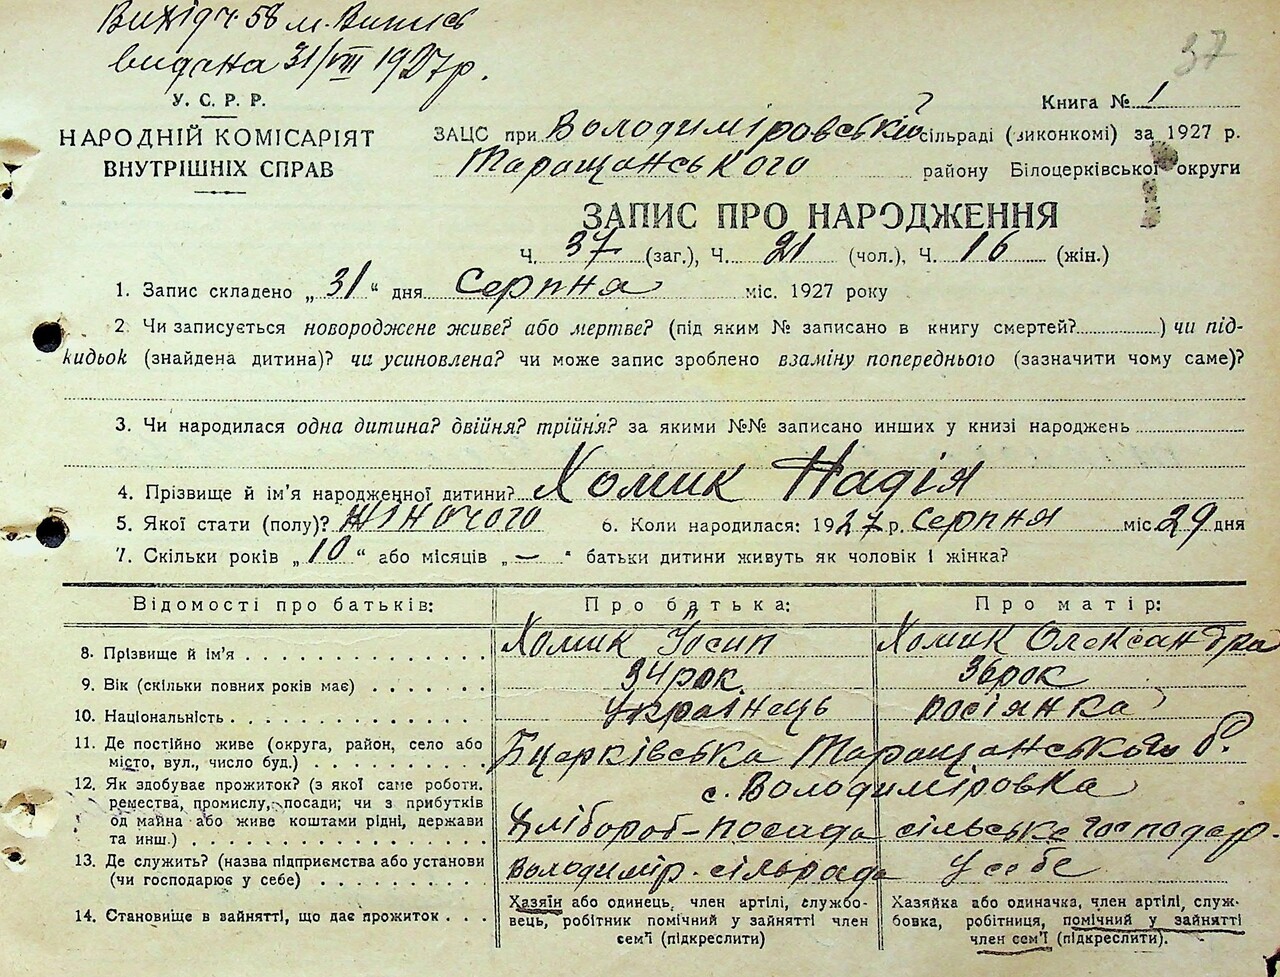 Вихід ч. 58 м. Випись
видана 31/VIII 1927р.
37
У. С. Р. Р.
НАРОДНІЙ КОМІСАРІЯТ
ВНУТРІШНІХ СПРАВ
Книга № 1
ЗАЦС при Володиміровській сільраді (виконкомі) за 1927 р.
Таращанського району Білоцерківської округи
ЗАПИС ПРО НАРОДЖЕННЯ
Ч. 37 (заг.), Ч. 21 (чол.), Ч. 16 (жін.)
1. Запис складено „ 31 “ дня Серпня міс. 1927 року
2. Чи записується новороджене живе? або мертве? (під яким № записано в книгу смертей?) чи під-
кидьок (знайдена дитина)? чи усиновлена? чи може запис зроблено взаміну попереднього (зазначити чому саме)?
3. Чи народилася одна дитина? двійня? трійня? за якими №№ записано инших у книзі народжень
4. Прізвище й ім’я народженної дитини? Хомик Надія
5. Якої стати (полу)? жіночого 6. Коли народилася: 1927 р. серпня міс. 29 дня
7. Скільки років „ 10 “ або місяців „ — “ батьки дитини живуть як чоловік і жінка?
Відомості про батьків: Про батька: Про матір:
8. Прізвище й ім’я Хомик Йосип Хомик Олександра
9. Вік (скільки повних років має) 34 рок. 36 рок
10. Національність Українець росіянка
11. Де постійно живе (округа, район, село або
місто, вул., число буд.) Бцерківська Таращанського р.
с. Володиміровка
12. Як здобуває прожиток? (з якої саме роботи.
ремества, промислу, посади; чи з прибутків
од майна або живе коштами рідні, держави
та инш.) Хлібороб-посада сільське господар.
13. Де служить? (назва підприємства або установи
(чи господарює у себе) Володимір. сільрада у себе
14. Становище в зайнятті, що дає прожиток
Хазяїн або одинець, член артілі, службо-
вець, робітник помічний у зайнятті член
сем’ї (підкреслити)
Хазяйка або одиначка, член артілі, служ-
бовка, робітниця, помічний у зайнятті
член сем’ї (підкреслити).